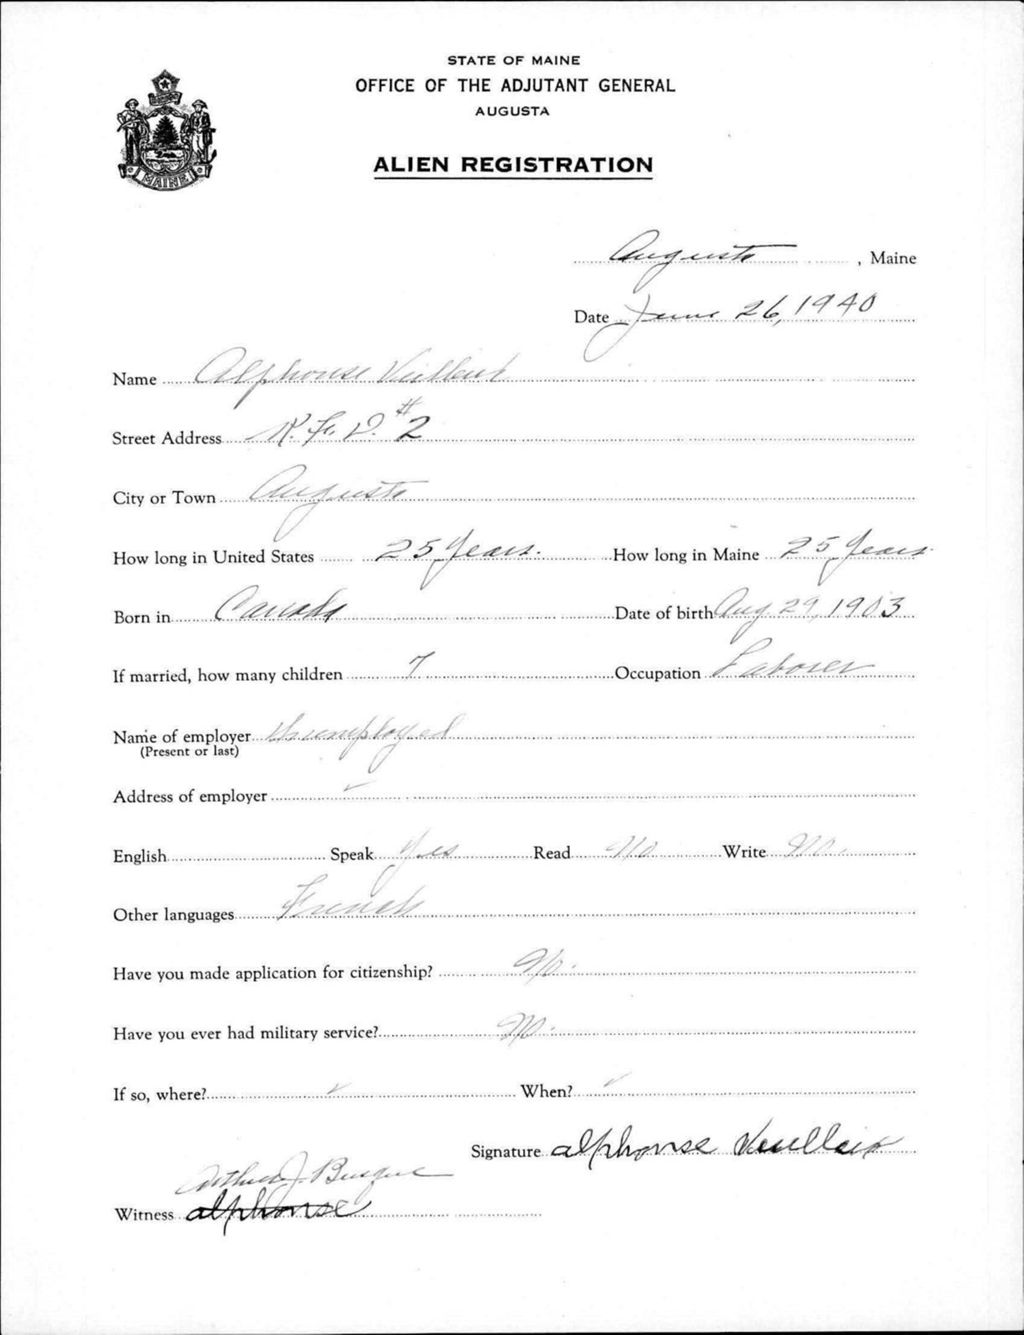 STATE OF MAINE
OFFICE OF THE ADJUTANT GENERAL
AUGUSTA
ALIEN REGISTRATION
MAINE
Augusta, Maine
Date June 26, 1940
Name Alphonse Veilleux
Street Address R. F. D. #2
City or Town Augusta
How long in United States 25 Years. How long in Maine 25 Years
Born in Canada Date of birth Aug 29, 1903
If married, how many children 7 Occupation Laborer
Name of employer Unemployed
(Present or last)
Address of employer
English Speak Yes Read No Write No.
Other languages French
Have you made application for citizenship? No.
Have you ever had military service? No.
If so, where? When?
Signature alphonse Veilleux
Arthur J.
Witness alphonse